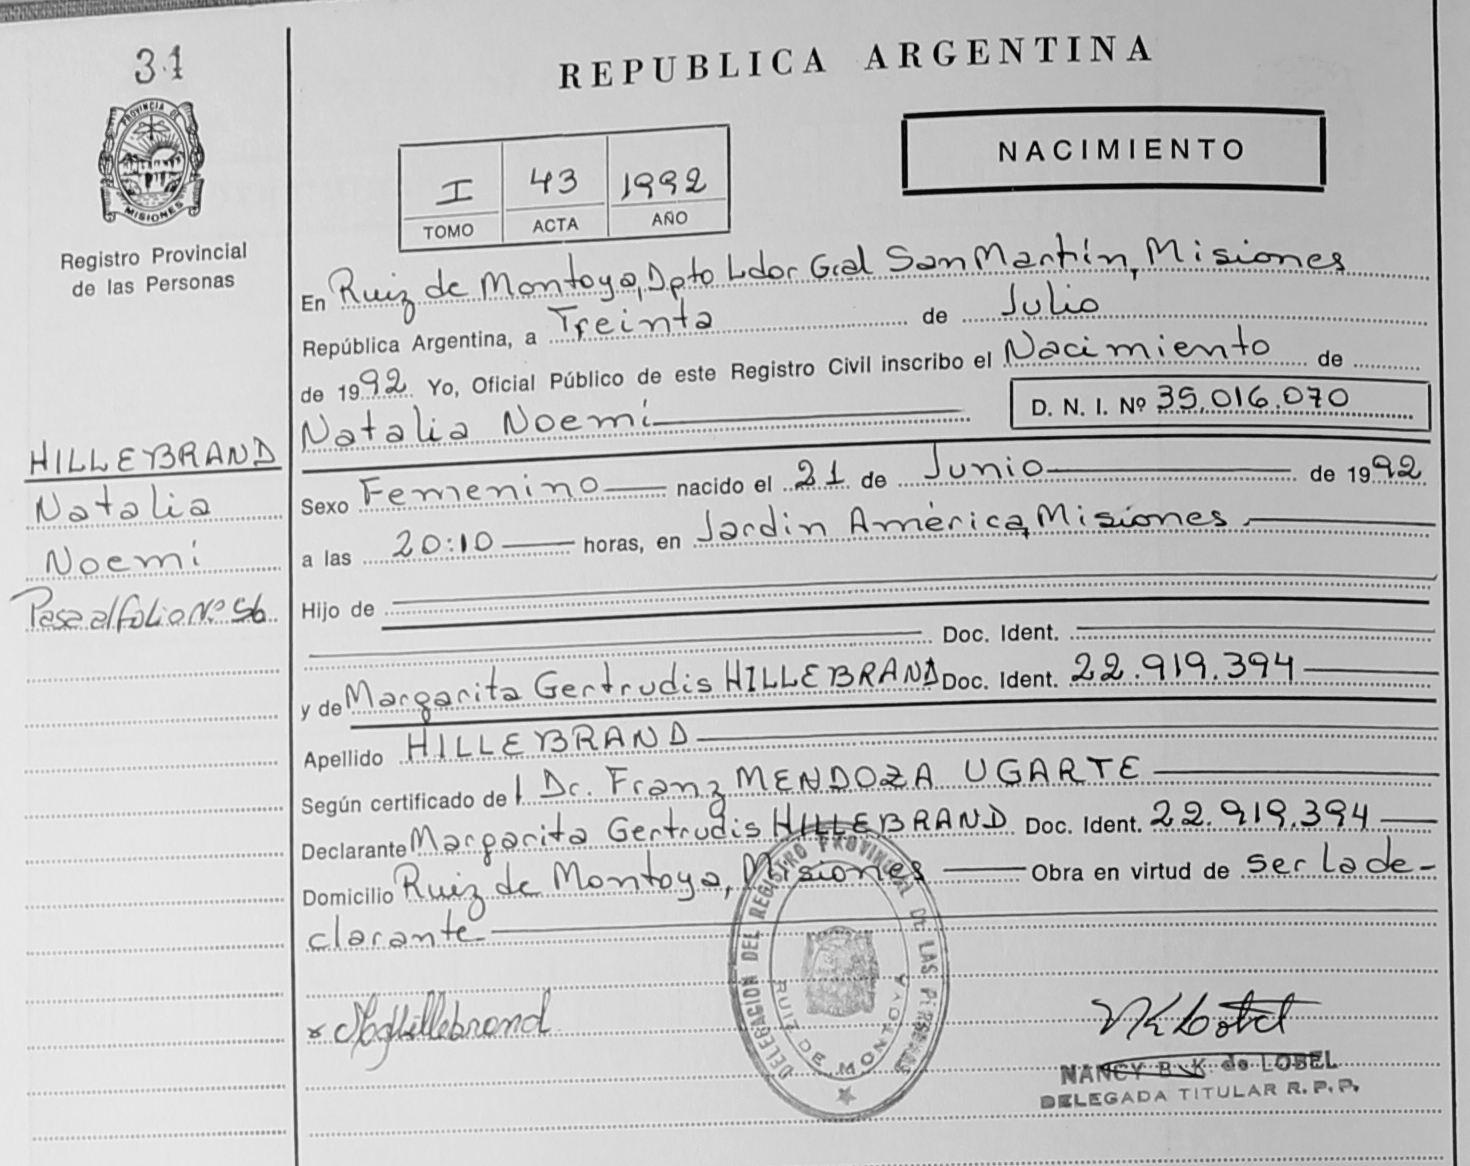 31
PROVINCIA DE
MISIONES
Registro Provincial
de las Personas
REPUBLICA ARGENTINA
NACIMIENTO
I 43 1992
TOMO ACTA AÑO
En Ruiz de Montoya, Dpto Ldor Gral San Martín, Misiones
República Argentina, a Treinta de Julio
de 1992 Yo, Oficial Público de este Registro Civil inscribo el Nacimiento de
Natalia Noemí
D. N. I. Nº 35.016.070
HILLEBRAND
Natalia
Noemí
Pase al folio Nº 56
Sexo Femenino nacido el 21 de Junio de 1992
a las 20:10 horas, en Jardín América, Misiones
Hijo de
Doc. Ident.
y de Margarita Gertrudis HILLEBRAND Doc. Ident. 22.919.394
Apellido HILLEBRAND
Según certificado de l Dr. Franz MENDOZA UGARTE
Declarante Margarita Gertrudis HILLEBRAND Doc. Ident. 22.919.394
Domicilio Ruiz de Montoya, Misiones Obra en virtud de ser la de-
clarante
DELEGACION DEL REGISTRO PROVINCIAL DE LAS PERSONAS
RUIZ DE MONTOYA
NANCY B. K. de LOBEL
DELEGADA TITULAR R. P. P.